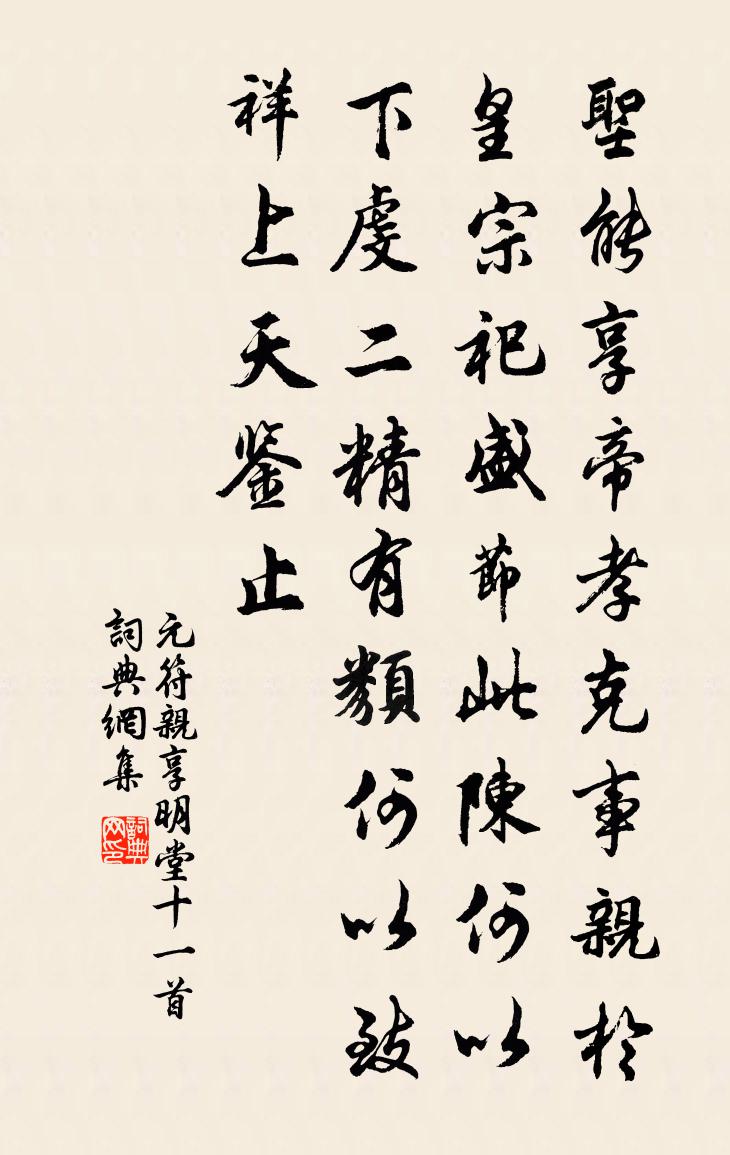 聖能享帝孝克事親於
皇宗祀盛節此陳何以
下虔二精有類何以致
祥上天鑒止
元符親享明堂十一首
詞典網集
詞典网印